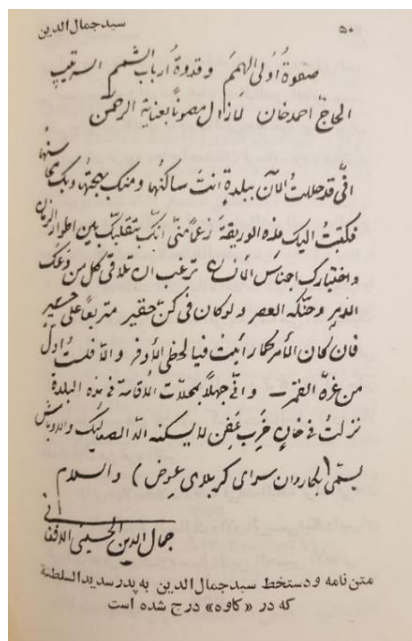 ۵۰
سید جمال‌الدین
صفوة أولی الهمم وقدوة أرباب الشمم السرتیب
الحاج احمد خان لازال مصوناً بعنایة الرحمن
انّی قد حللت الآن ببلدة انت ساکنها ومنک بهجتها وبک محاسنها
فکتبت الیک هذه الوریقة زعماً منّی انّک بتقلبک بین اطوار الزمن
واختبارک اجناس الانسان ترغب ان تلاقی کل من دعک
الدهر وحنکه العصر ولو کان فی کن حقیر متربعاً علی حصیر
فان کان الأمر کما رایت فیا لحظی الأوفر والا فلست اول
من غره القمر – وانّی جهلاً بمحلات الاقامة فی هذه البلدة
نزلت فی خان خرب عفن لا یسکنه الا الصعالیک والاوباش
یسمّی (بکاروان سرای کربلای عوض) والسلام
جمال الدین الحسینی الافغانی
متن نامه و دستخط سید جمال‌الدین به پدر سدیدالسلطنة
که در «کاوه» درج شده است